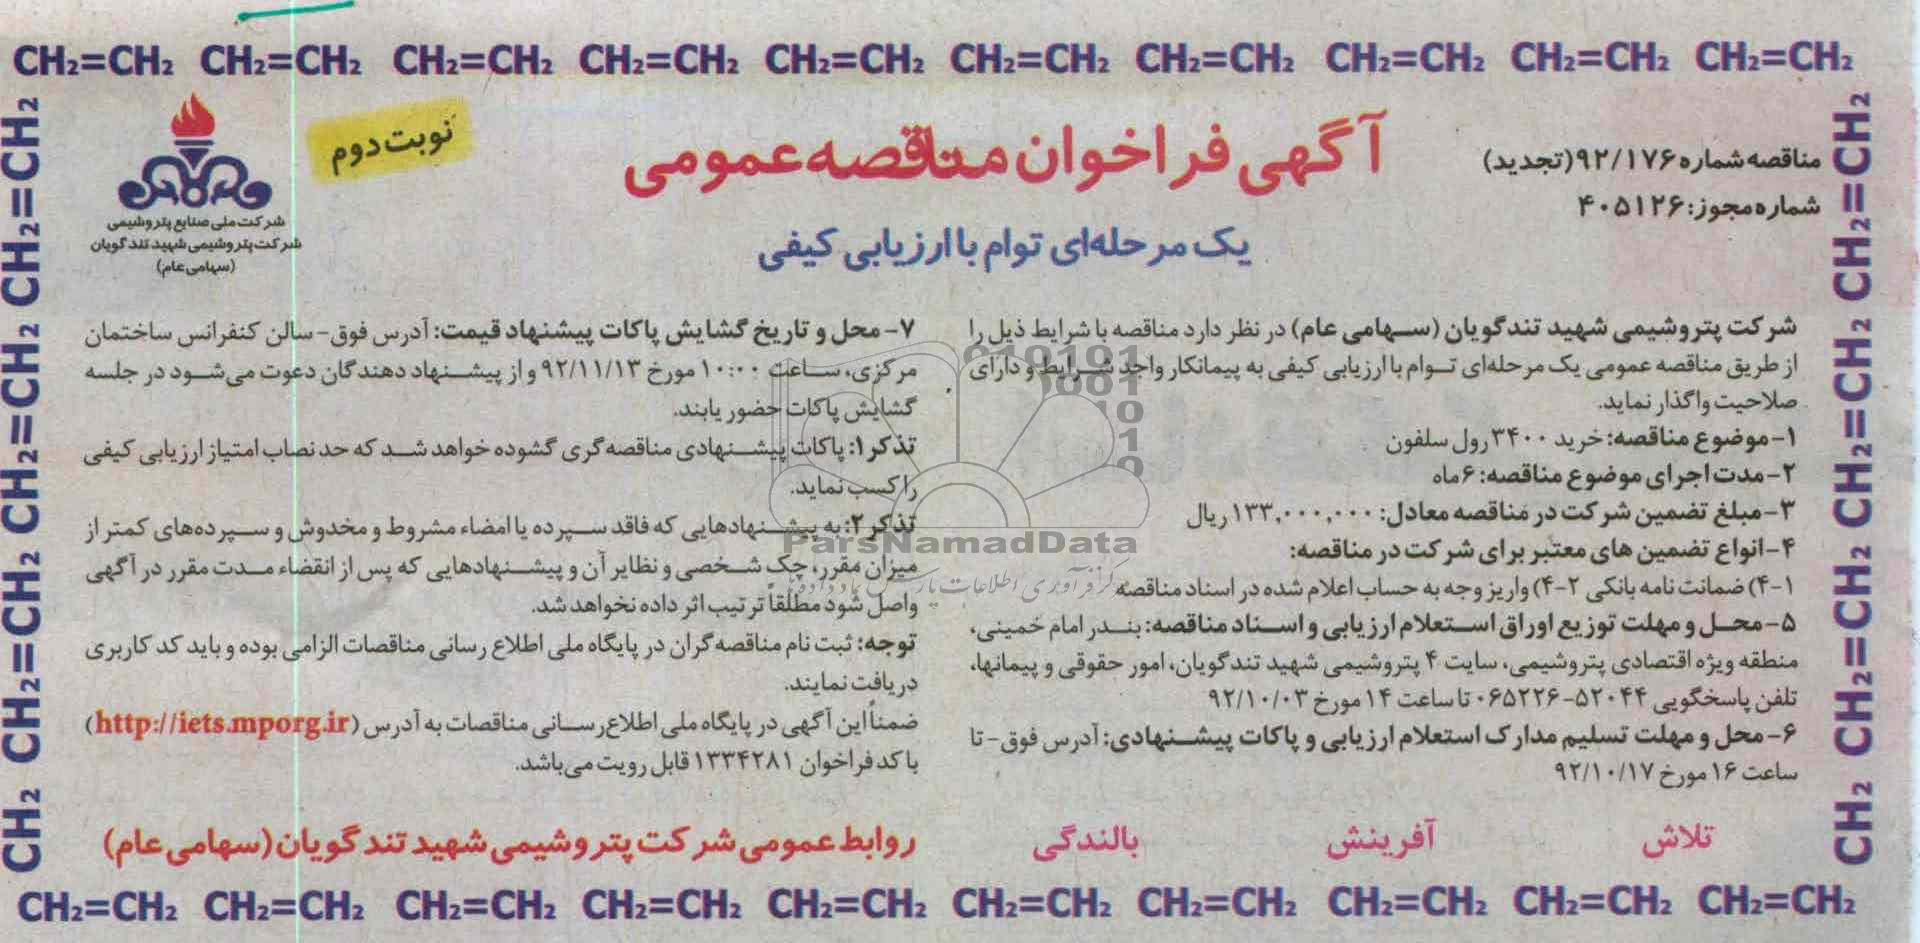 CH₂=CH₂ CH₂=CH₂ CH₂=CH₂ CH₂=CH₂ CH₂=CH₂ CH₂=CH₂ CH₂=CH₂ CH₂=CH₂ CH₂=CH₂ CH₂=CH₂
مناقصه شماره ۹۲/۱۷۶ (تجدید)
شماره مجوز: ۴۰۵۱۲۶
آگهی فراخوان مناقصه عمومی
یک مرحله‌ای توام با ارزیابی کیفی
نوبت دوم
شرکت ملی صنایع پتروشیمی
شرکت پتروشیمی شهید تندگویان
(سهامی عام)
شرکت پتروشیمی شهید تندگویان (سهامی عام) در نظر دارد مناقصه با شرایط ذیل را
از طریق مناقصه عمومی یک مرحله‌ای توام با ارزیابی کیفی به پیمانکار واجد شرایط و دارای
صلاحیت واگذار نماید.
۱- موضوع مناقصه: خرید ۳۴۰۰ رول سلفون
۲- مدت اجرای موضوع مناقصه: ۶ ماه
۳- مبلغ تضمین شرکت در مناقصه معادل: ۱۳۳,۰۰۰,۰۰۰ ریال
۴- انواع تضمین های معتبر برای شرکت در مناقصه:
۴-۱) ضمانت نامه بانکی ۴-۲) واریز وجه به حساب اعلام شده در اسناد مناقصه
۵- محل و مهلت توزیع اوراق استعلام ارزیابی و اسناد مناقصه: بندر امام خمینی،
منطقه ویژه اقتصادی پتروشیمی، سایت ۴ پتروشیمی شهید تندگویان، امور حقوقی و پیمانها،
تلفن پاسخگویی ۵۲۰۴۴-۰۶۵۲۲۶ تا ساعت ۱۴ مورخ ۹۲/۱۰/۰۳
۶- محل و مهلت تسلیم مدارک استعلام ارزیابی و پاکات پیشنهادی: آدرس فوق- تا
ساعت ۱۶ مورخ ۹۲/۱۰/۱۷
۷- محل و تاریخ گشایش پاکات پیشنهاد قیمت: آدرس فوق- سالن کنفرانس ساختمان
مرکزی، ساعت ۱۰:۰۰ مورخ ۹۲/۱۱/۱۳ و از پیشنهاد دهندگان دعوت می‌شود در جلسه
گشایش پاکات حضور یابند.
تذکر۱: پاکات پیشنهادی مناقصه‌گری گشوده خواهد شد که حد نصاب امتیاز ارزیابی کیفی
را کسب نماید.
تذکر۲: به پیشنهادهایی که فاقد سپرده یا امضاء مشروط و مخدوش و سپرده‌های کمتر از
میزان مقرر، چک شخصی و نظایر آن و پیشنهادهایی که پس از انقضاء مدت مقرر در آگهی
واصل شود مطلقاً ترتیب اثر داده نخواهد شد.
توجه: ثبت نام مناقصه‌گران در پایگاه ملی اطلاع رسانی مناقصات الزامی بوده و باید کد کاربری
دریافت نمایند.
ضمناً این آگهی در پایگاه ملی اطلاع‌رسانی مناقصات به آدرس (http://iets.mporg.ir)
با کد فراخوان ۱۳۳۴۲۸۱ قابل رویت می‌باشد.
ParsNamadData
تلاش آفرینش بالندگی
روابط عمومی شرکت پتروشیمی شهید تندگویان (سهامی عام)
CH₂=CH₂ CH₂=CH₂ CH₂=CH₂ CH₂=CH₂
CH₂=CH₂ CH₂=CH₂ CH₂=CH₂ CH₂=CH₂
CH₂=CH₂ CH₂=CH₂ CH₂=CH₂ CH₂=CH₂ CH₂=CH₂ CH₂=CH₂ CH₂=CH₂ CH₂=CH₂ CH₂=CH₂ CH₂=CH₂